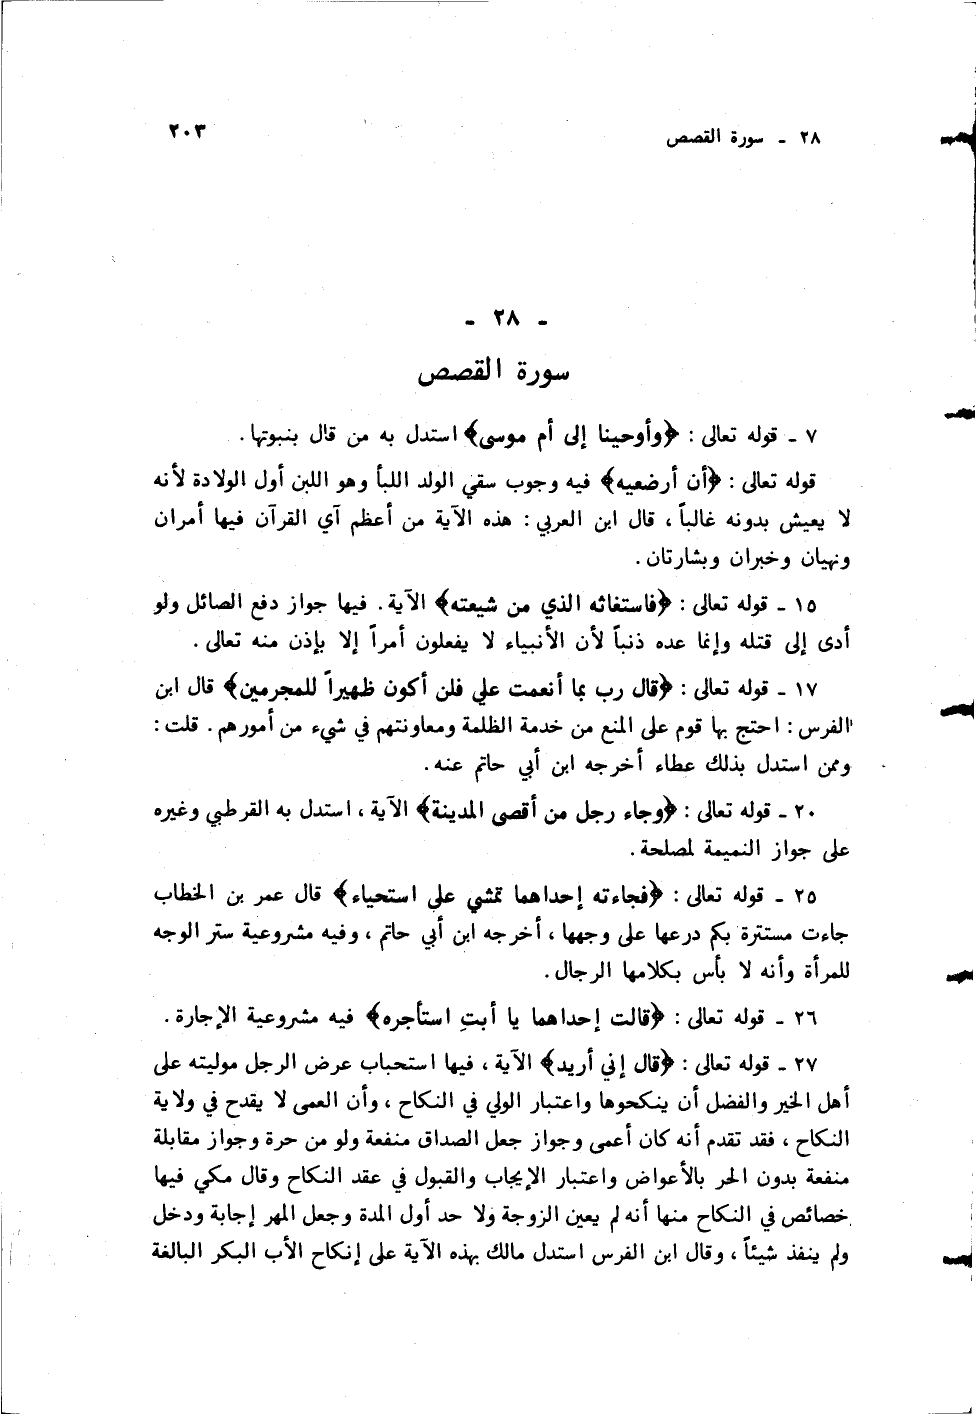 ٢٨ - سورة القصص
٢٠٣
- ٢٨ -
سورة القصص
٧ - قوله تعالى : ﴿وأوحينا إلى أم موسى﴾ استدل به من قال بنبوتها .
قوله تعالى : ﴿أن أرضعيه﴾ فيه وجوب سقي الولد اللبأ وهو اللبن أول الولادة لأنه
لا يعيش بدونه غالباً ، قال ابن العربي : هذه الآية من أعظم آي القرآن فيها أمران
ونهيان وخبران وبشارتان .
١٥ - قوله تعالى : ﴿فاستغاثه الذي من شيعته﴾ الآية . فيها جواز دفع الصائل ولو
أدى إلى قتله وإنما عده ذنباً لأن الأنبياء لا يفعلون أمراً إلا بإذن منه تعالى .
١٧ - قوله تعالى : ﴿قال رب بما أنعمت علي فلن أكون ظهيراً للمجرمين﴾ قال ابن
الفرس : احتج بها قوم على المنع من خدمة الظلمة ومعاونتهم في شيء من أمورهم . قلت :
وممن استدل بذلك عطاء أخرجه ابن أبي حاتم عنه .
٢٠ - قوله تعالى : ﴿وجاء رجل من أقصى المدينة﴾ الآية ، استدل به القرطبي وغيره
على جواز النميمة لمصلحة .
٢٥ - قوله تعالى : ﴿فجاءته إحداهما تمشي على استحياء﴾ قال عمر بن الخطاب
جاءت مستترة بكم درعها على وجهها ، أخرجه ابن أبي حاتم ، وفيه مشروعية ستر الوجه
للمرأة وأنه لا بأس بكلامها الرجال .
٢٦ - قوله تعالى : ﴿قالت إحداهما يا أبتِ استأجره﴾ فيه مشروعية الإجارة .
٢٧ - قوله تعالى : ﴿قال إني أريد﴾ الآية ، فيها استحباب عرض الرجل موليته على
أهل الخير والفضل أن ينكحوها واعتبار الولي في النكاح ، وأن العمى لا يقدح في ولاية
النكاح ، فقد تقدم أنه كان أعمى وجواز جعل الصداق منفعة ولو من حرة وجواز مقابلة
منفعة بدون الحر بالأعواض واعتبار الإيجاب والقبول في عقد النكاح وقال مكي فيها
خصائص في النكاح منها أنه لم يعين الزوجة ولا حد أول المدة وجعل المهر إجابة ودخل
ولم ينفذ شيئاً ، وقال ابن الفرس استدل مالك بهذه الآية على إنكاح الأب البكر البالغة